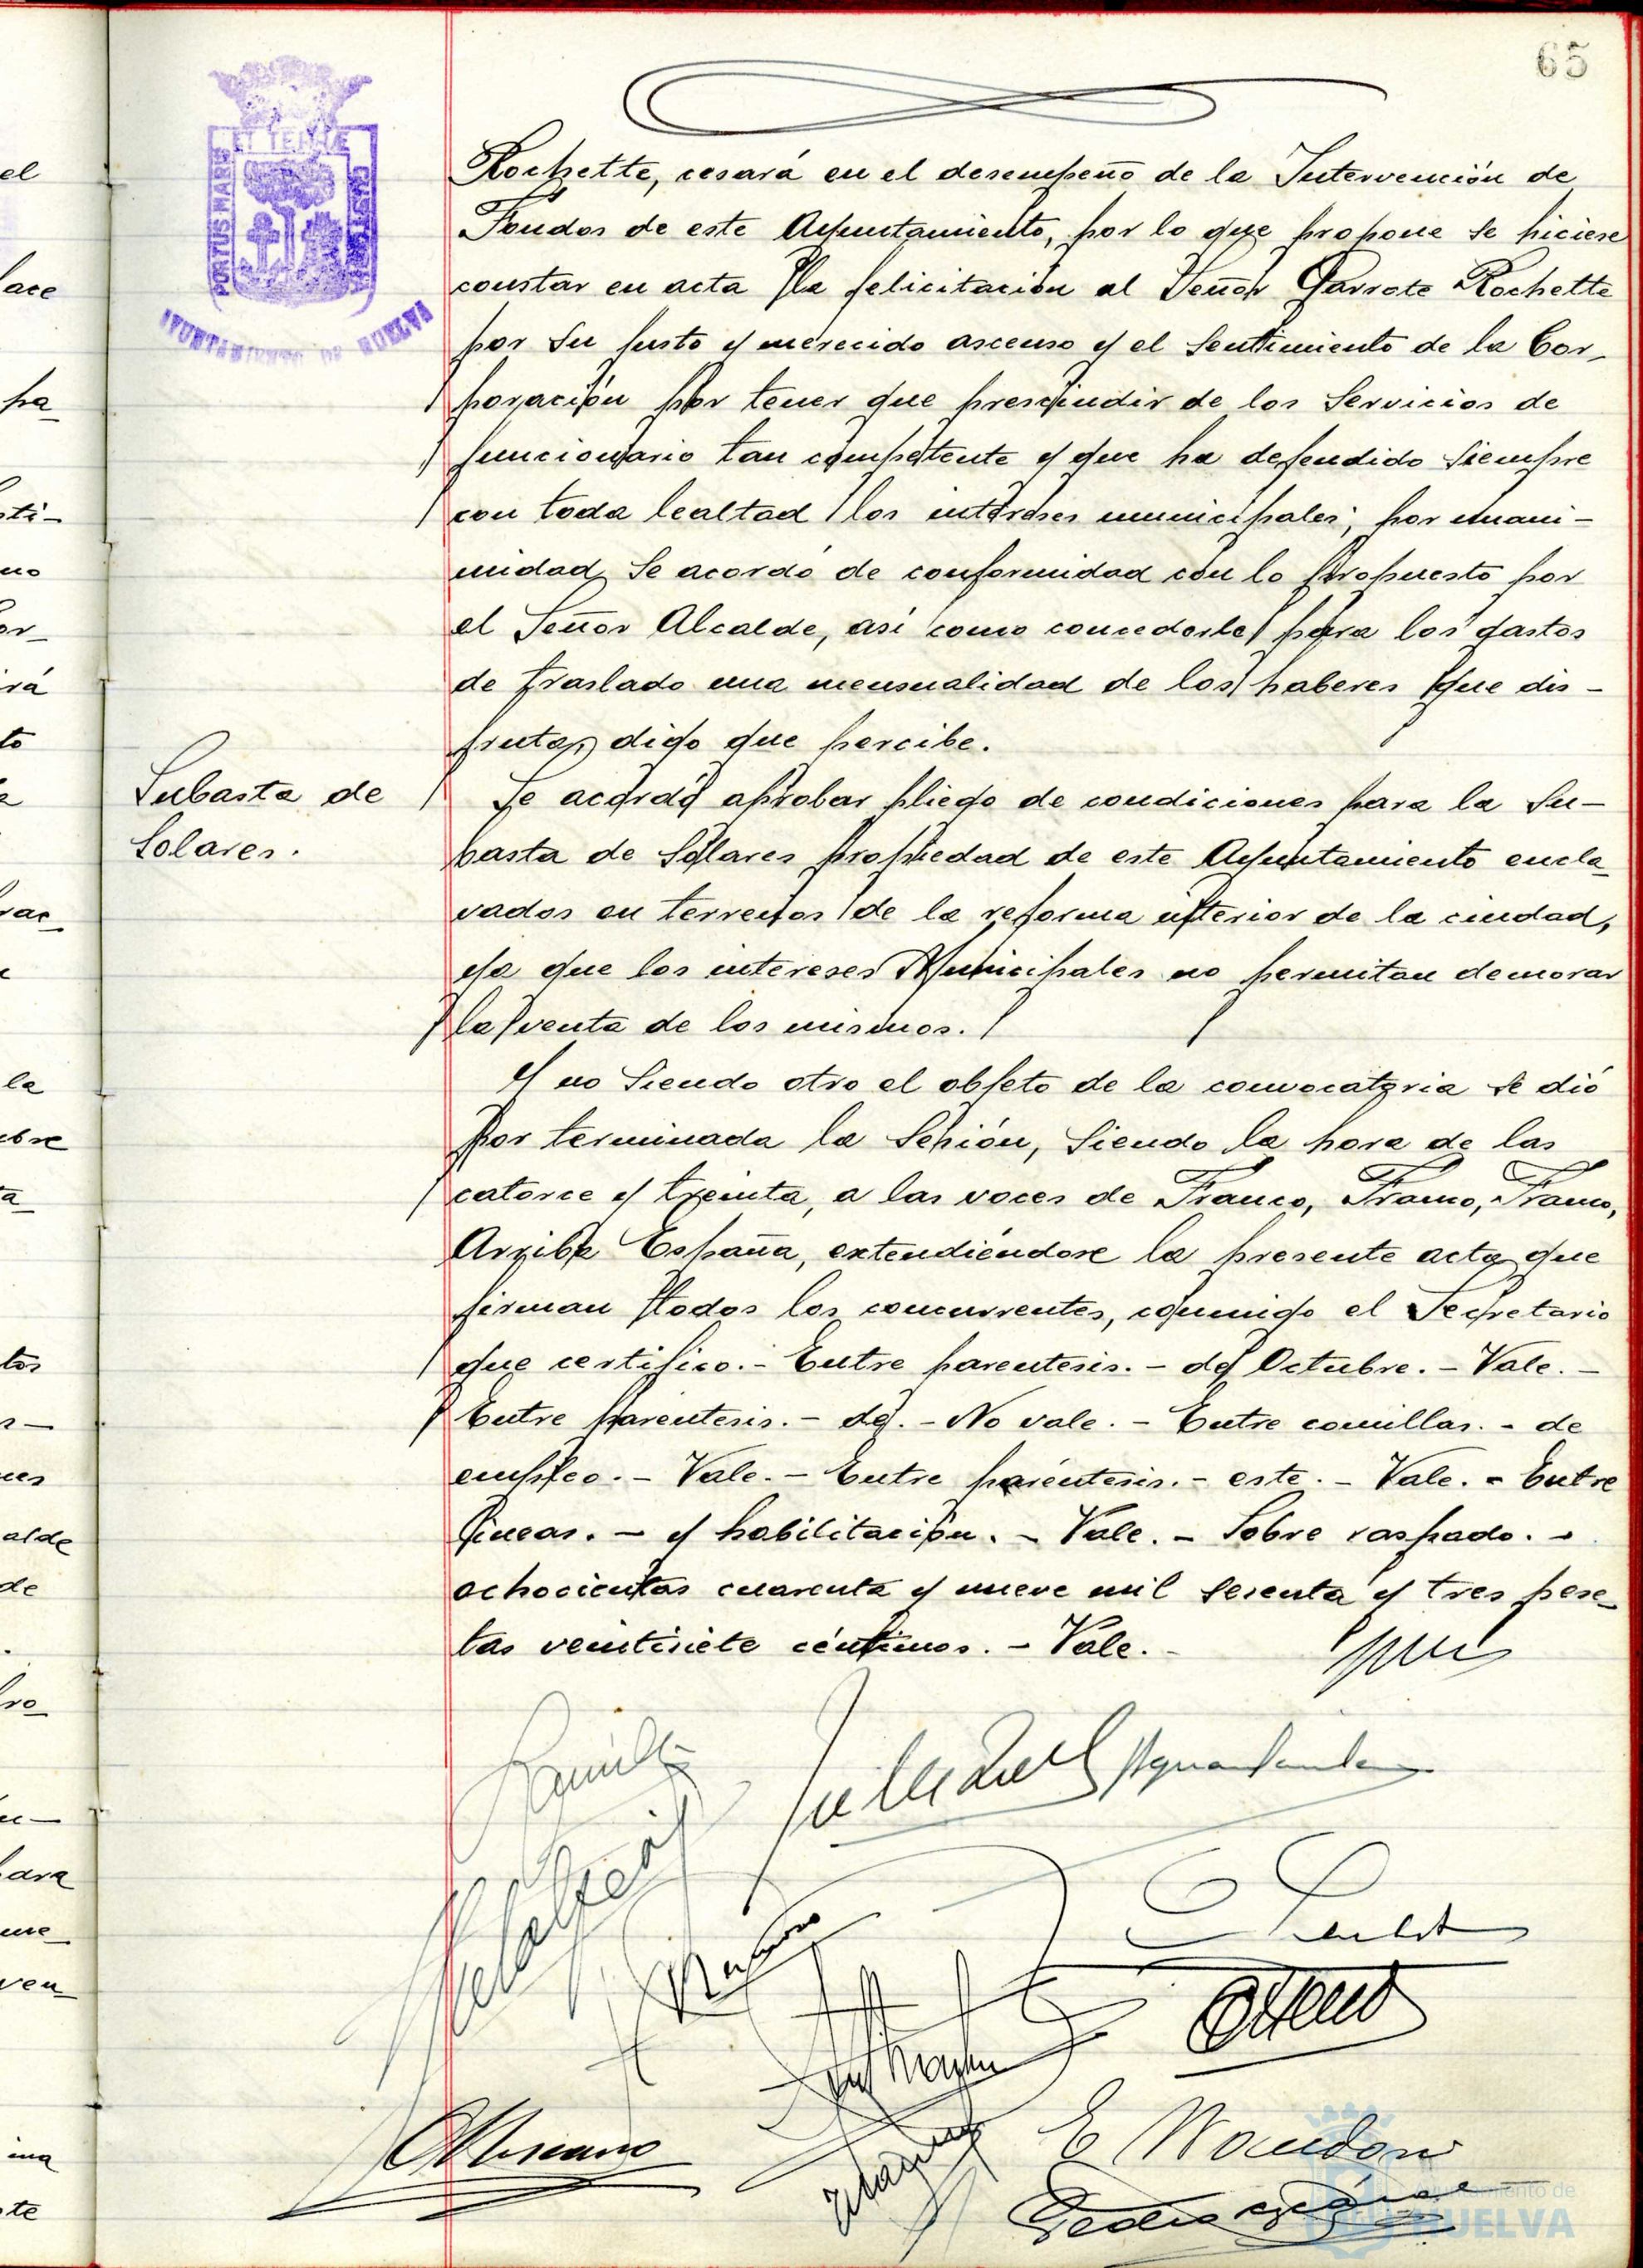 65
PORTUS MARIS
ET TERRÆ
CUSTODIA
AYUNTAMIENTO DE HUELVA
Rochette, cesará en el desempeño de la Intervención de
Fondos de este Ayuntamiento, por lo que propone se hiciese
constar en acta la felicitación al Señor Garrote Rochette
por su justo y merecido ascenso y el sentimiento de la Cor-
poración por tener que prescindir de los servicios de
funcionario tan competente y que ha defendido siempre
con toda lealtad los intereses municipales; por unani-
midad se acordó de conformidad con lo propuesto por
el Señor Alcalde, asi como concederle para los gastos
de traslado una mensualidad de los haberes que dis-
fruta, digo que percibe.
Subasta de
Solares.
Se acordó aprobar pliego de condiciones para la su-
basta de solares propiedad de este Ayuntamiento encla-
vados en terrenos de la reforma interior de la ciudad,
ya que los intereses Municipales no permitan demorar
la venta de los mismos.
Y no siendo otro el objeto de la convocatoria se dió
por terminada la sesión, siendo la hora de las
catorce y treinta, a las voces de Franco, Franco, Franco,
Arriba España, extendiéndose la presente acta que
firman todos los concurrentes, conmigo el Secretario
que certifico.- Entre parentesis.- de Octubre.- Vale.-
Entre parentesis.- de.- No vale.- Entre comillas.- de
empleo.- Vale.- Entre paréntesis.- este.- Vale.- Entre
lineas.- y habilitación.- Vale.- Sobre raspado.-
ochocientas cuarenta y nueve mil sesenta y tres pese-
tas veintisiete céntimos.- Vale.-
E Mandoni
Pedro
Ayuntamiento de
HUELVA